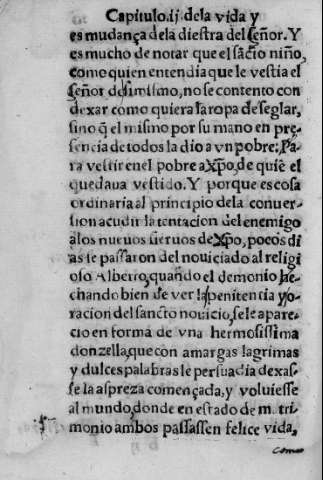 Capitulo.ij.dela vida y
es mudança dela diestra del señor. Y
es mucho de notar que el sãcto niño,
como quien entendia que le vestia el
señor desimismo, no se contento con
dexar como quiera la ropa de seglar,
sino q̃ el mismo por su mano en pre
sencia de todos la dio a vn pobre: Pa
ra vestir en el pobre a Xp̃o, de quiẽ el
quedaua vestido. Y porque es cosa
ordinaria al principio dela conuer-
sion acudir la tentacion del enemigo
alos nueuos sieruos de Xp̃o, pocos di
as se passaron del nouiciado al religi
oso Alberto, quando el demonio he
chando bien de ver la penitencia y o-
racion del sancto nouicio, se le apare-
cio en forma de vna hermosissima
donzella, que con amargas lagrimas
y dulces palabras le persuadia dexas-
se la aspreza començada, y voluiesse
al mundo, donde en estado de m. tri
monio ambos passassen felice vida,
como